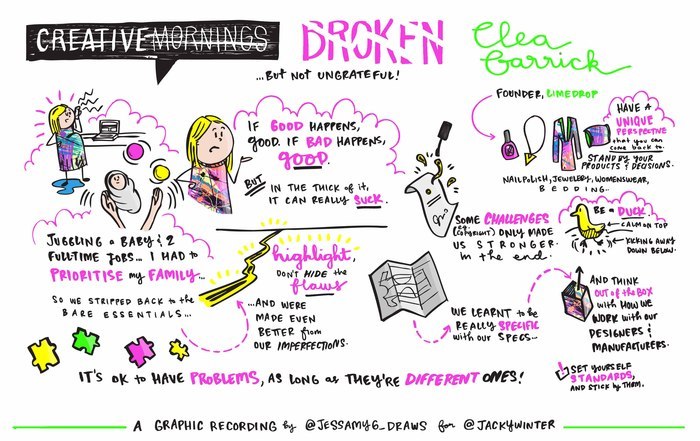 CREATIVEMORNINGS
BROKEN
Clea
Garrick
...BUT NOT UNGRATEFUL!
FOUNDER, LIMEDROP
HAVE A
UNIQUE
PERSPECTIVE
that you can
come back to
STAND BY YOUR
PRODUCTS & DECISIONS.
NAILPOLISH, JEWELERY, WOMENSWEAR,
BEDDING..
IF GOOD HAPPENS,
GOOD. IF BAD HAPPENS,
GOOD.
BUT IN THE THICK of it,
IT CAN REALLY SUCK.
JUGGLING a BABY & 2
FULLTIME JOBS... I HAD to
PRIORITISE my FAMILY...
SO WE STRIPPED BACK to the
BARE ESSENTIALS...
highlight,
DON'T HIDE the
flaws
...AND WERE
MADE EVEN
BETTER from
OUR IMPERFECTIONS.
SOME CHALLENGES
(e.g. COPYRIGHT) ONLY MADE
US STRONGER.
in the end.
BE a DUCK.
CALM ON TOP
KICKING AWAY
DOWN BELOW.
WE LEARNT to be
REALLY SPECIFIC
with OUR SPECS...
AND THINK
OUT of the BOX
with HOW WE
WORK with OUR
DESIGNERS &
MANUFACTURERS.
SET YOURSELF
STANDARDS,
AND STICK by THEM.
IT'S OK to HAVE PROBLEMS, AS LONG as THEY'RE DIFFERENT ONES!
A GRAPHIC RECORDING by @JESSAMYG_DRAWS for @JACKYWINTER